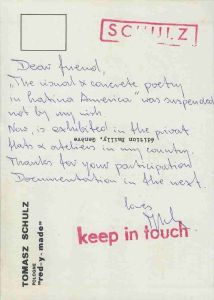 SCHULZ
Dear friend,
„The visual & concrete poetry
in Latina America" was suspended
not by my wish.
Now, is exhibited in the privat
flats & ateliers in my country.
Thanks for your participation
Documentation in the next.
loves
keep in touch
édition Smilly, Genève
TOMASZ SCHULZ
POLOGNE
"red-y-made"